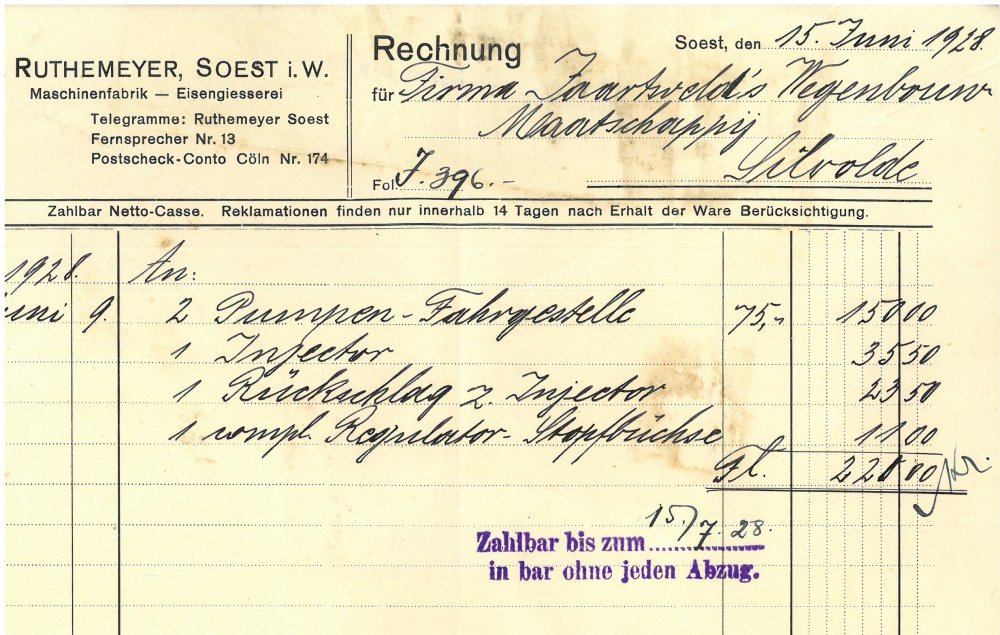 RUTHEMEYER, SOEST i. W.
Maschinenfabrik — Eisengiesserei
Telegramme: Ruthemeyer Soest
Fernsprecher Nr. 13
Postscheck-Conto Cöln Nr. 174
Rechnung
Soest, den 15. Juni 1928.
für Firma Zaartveld's Wegenbouw
Maatschappij
Silvolde
Fol. J. 396.-
Zahlbar Netto-Casse. Reklamationen finden nur innerhalb 14 Tagen nach Erhalt der Ware Berücksichtigung.
1928. An:
Juni 9. 2 Pumpen-Fahrgestelle 75,- 150 00
1 Injector 35 50
1 Rückschlag z. Injector 23 50
1 compl. Regulator-Stopfbüchse 11 00
Fl. 220 00
Zahlbar bis zum 15./7. 28.
in bar ohne jeden Abzug.